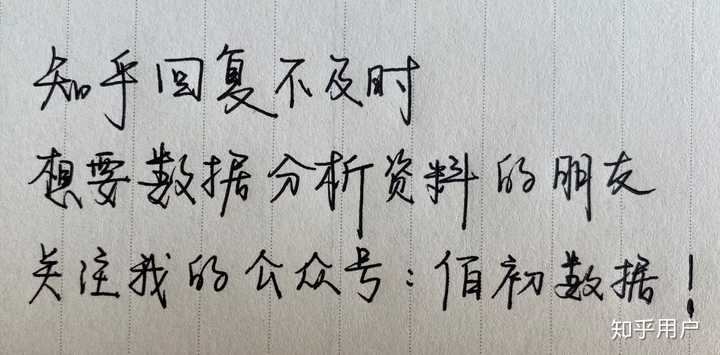 知乎回复不及时
想要数据分析资料的朋友
关注我的公众号：佰初数据！
知乎用户